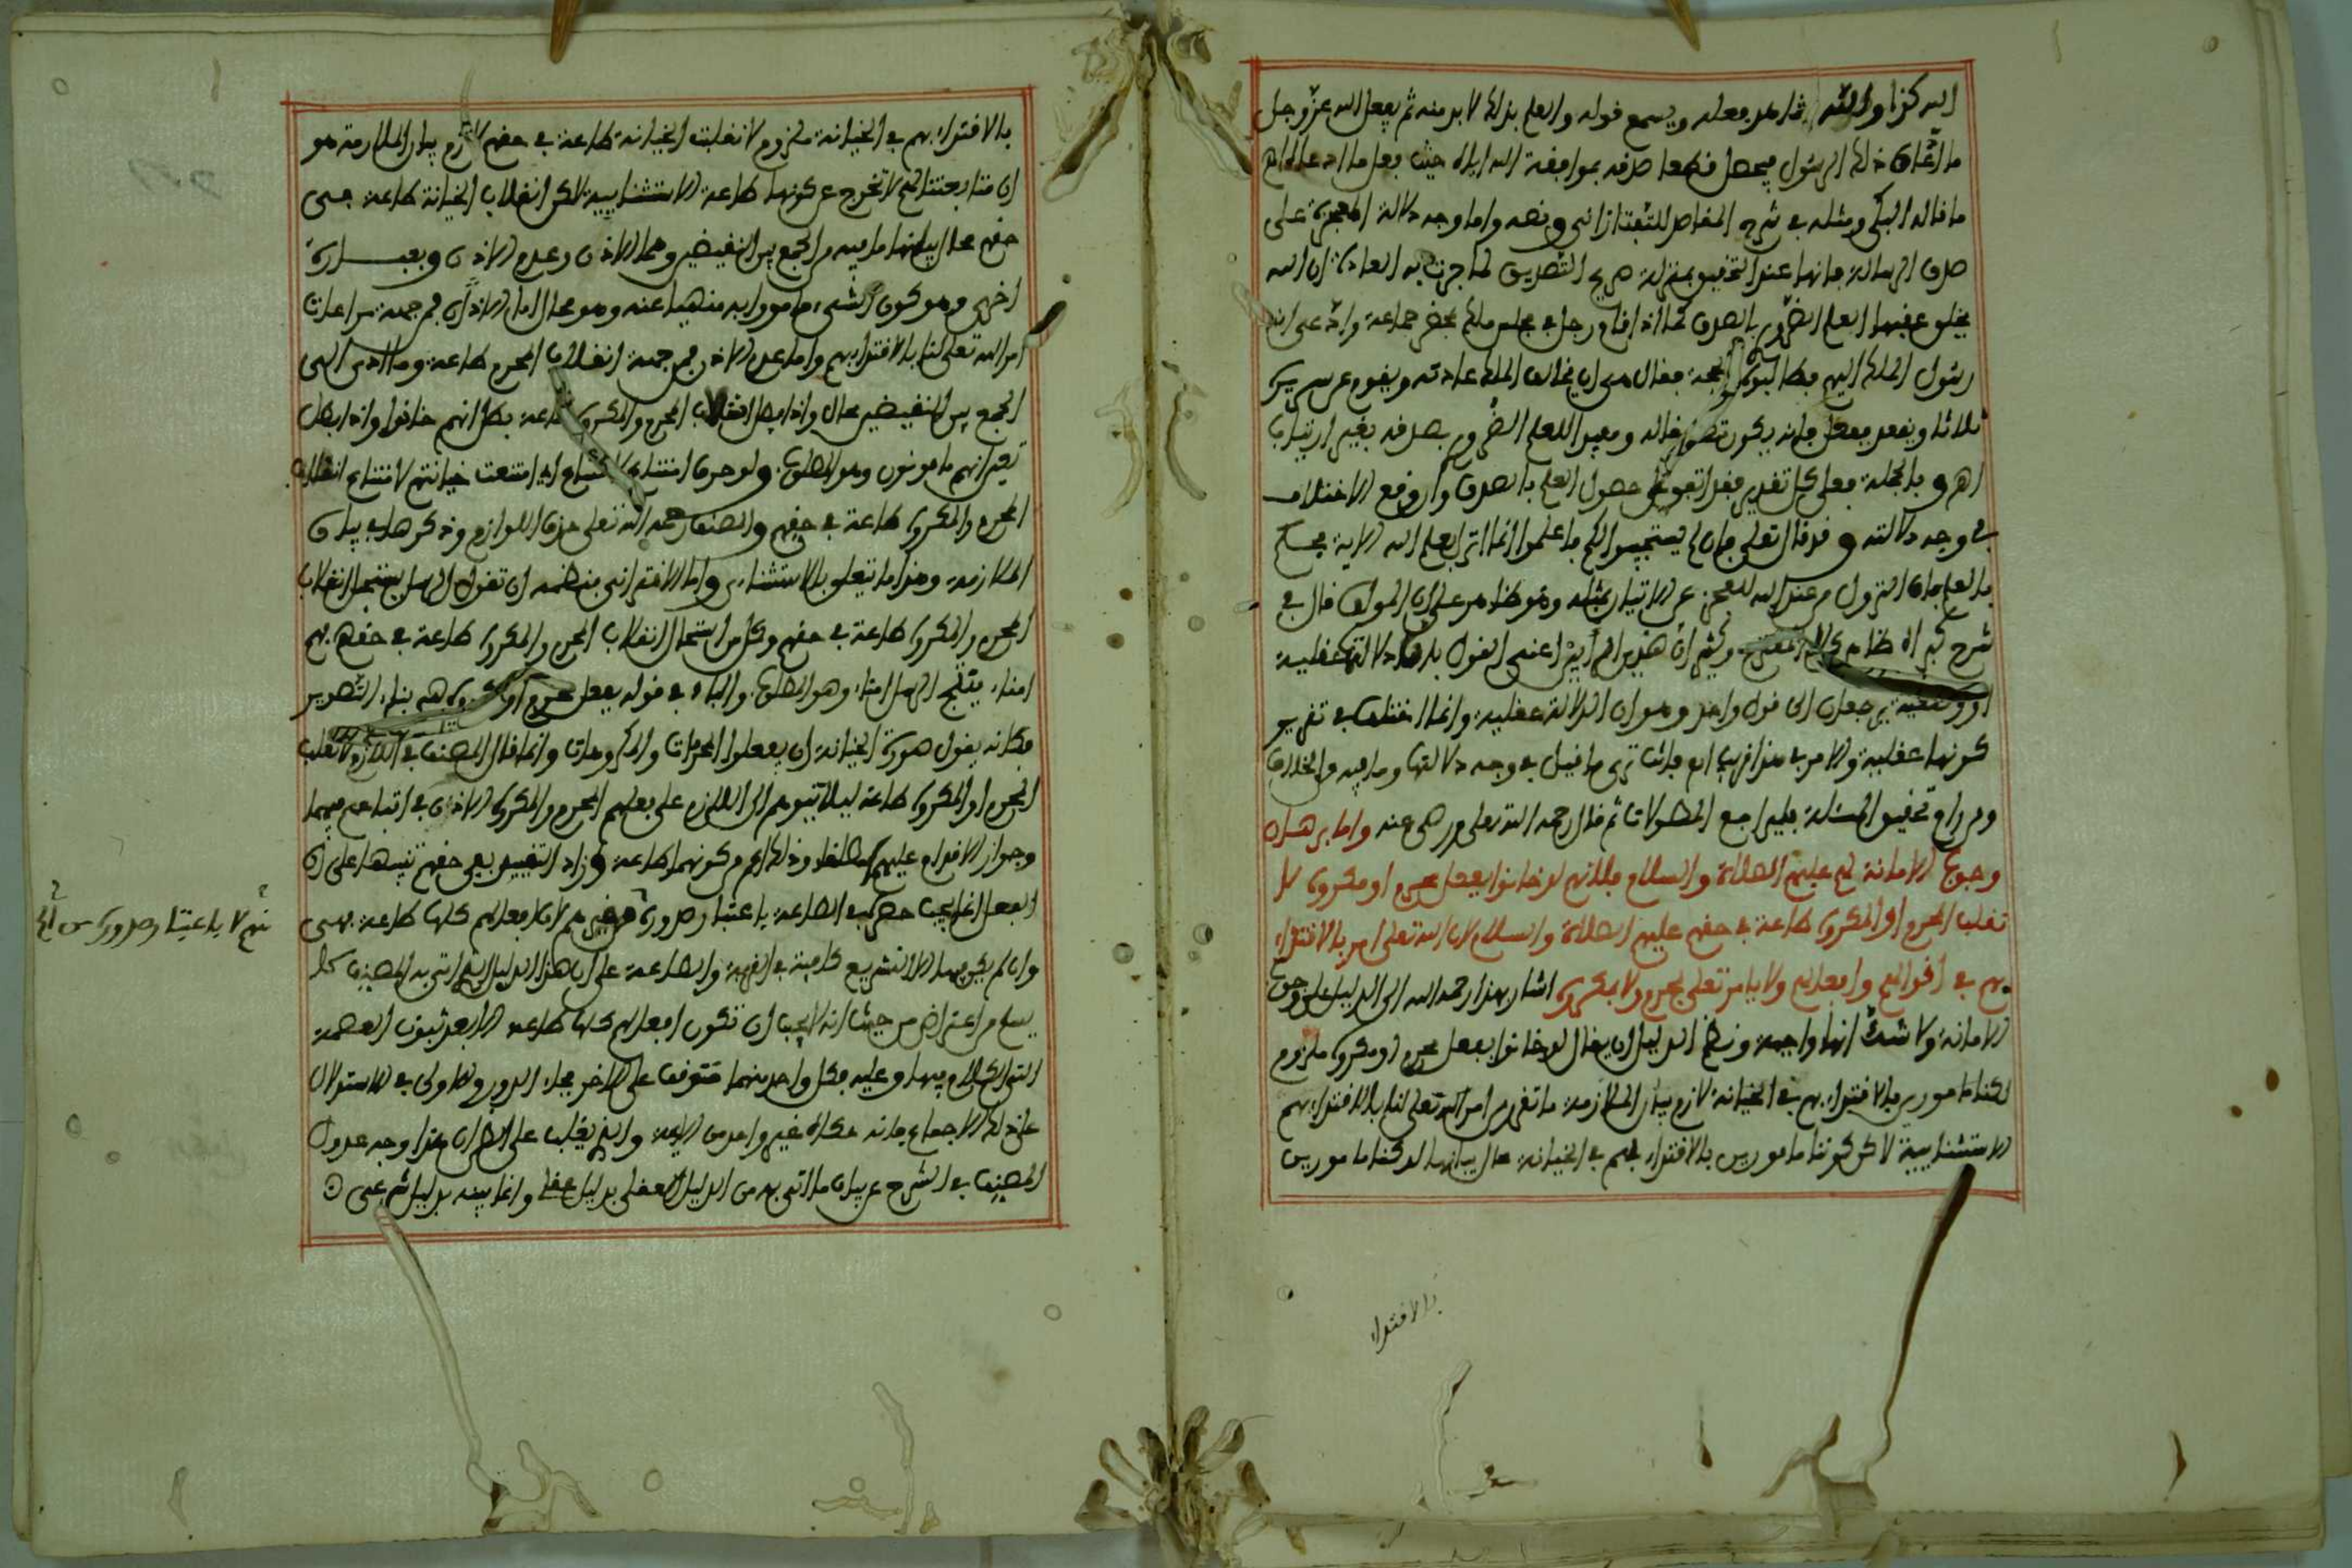 الله كذا والله شاهد فعله ويسمع قوله والعلم بذلك لا بد منه ثم يفعل الله عز وجل
ما اتفاق ذلك الرسول فيحصل قطعا صدقه بموافقة الله اياه حيث فعل ما ادعاه اهـ
ما قاله البكي ومثله في شرح المقاصد للتفتازاني ونصه واما وجه دلالة المعجزة على
صدق الرسالة فانها عند التحقيق بمنزلة صريح التصديق لما جرت به العادة ان الله
يخلق عقبها العلم الضروري بالصدق كما اذا قام رجل في مجلس ملك بحضرة جماعة وادعى انه
رسول الملك اليهم فطالبوه بالحجة فقال هي ان يخالف الملك عادته ويقوم عن سريره
ثلاثا ويقعد ففعل فانه يكون تصديقا له ومفيدا للعلم الضروري بصدقه بغير ارتياب
اهـ وبالجملة فعلى كل تقدير فقد اتفق على حصول العلم بالصدق وان وقع الاختلاف
في وجه دلالته وقد قال تعلى فان لم يستجيبوا لكم فاعلموا انما انزل بعلم الله الاية
بالعلم بان النزول من عند الله للعجز عن الاتيان بمثله وهو ظاهر على ان المؤلف قال في
شرح كبراه ظاهر كلام المقترح وكثير ان هذين الرايين اعني القول بان دلالتها عقلية
او وضعية يرجعان الى قول واحد وهو ان الدلالة عقلية وانما اختلف في تقرير
كونها عقلية والامر في هذا قريب اهـ فانت ترى ما قيل في وجه دلالتها وما فيه من الخلاف
ومن رام تحقيق المسئلة فليراجع المطولات ثم قال رحمه الله تعلى ورضي عنه واما برهان
وجوب الامانة لهم عليهم الصلاة والسلام فلانهم لو خانوا بفعل محرم او مكروه لا
نقلب المحرم او المكروه طاعة في حقهم عليهم الصلاة والسلام لان الله تعلى امر بالاقتداء
بهم في اقوالهم وافعالهم ولا يامر تعلى بمحرم ولا مكروه اشار بهذا رحمه الله الى الدليل على وجوب
الامانة ولا شك انها واجبة ونظم الدليل ان يقال لو خانوا بفعل محرم او مكروه ملزوم
لكنا مامورين بالاقتداء بهم في الخيانة لازم بيان الملازمة ما تقرر من امر الله تعلى لنا بالاقتداء بهم
الاستثنايية لاكن كوننا مامورين بالاقتداء بهم في الخيانة محال بيانها لو كنا مامورين
بالاقتداء
بالاقتداء بهم في الخيانة ملزوم لانقلبت الخيانة طاعة في حقهم لازم بيان الملازمة هو
ان متابعتنا لهم لا تخرج عن كونها طاعة الاستثنايية لاكن انقلاب الخيانة طاعة في
حقهم محال بيانها ما فيه من الجمع بين النقيضين وهما الاذن وعدم الاذن وبعبارة
اخرى وهو كون الشيء مامورا به منهيا عنه وهو محال اما الاذن فمن جهة مراعات
امر الله تعلى لنا بالاقتداء بهم واما عدم الاذن فمن جهة انقلاب المحرم طاعة وما ادى الى
الجمع بين النقيضين محال واذا بطل انقلاب المحرم والمكروه طاعة بطل انهم خانوا واذا بطل
تعين انهم مامونون وهو المطلوب ولو حرف امتناع لامتناع اي امتنعت خيانتهم لامتناع انقلاب
المحرم والمكروه طاعة في حقهم والمصنف رحمه الله تعلى حذف اللوازم وذكرها في بيان
الملازمة وهذا ما تعلق بالاستثناءي واما الاقتراني فنظمه ان تقول الرسل يستحيل انقلاب
المحرم والمكروه طاعة في حقهم وكل من استحال انقلاب المحرم والمكروه طاعة في حقه فهم
امناء ينتج الرسل امناء وهو المطلوب والباء في قوله بفعل محرم او مكروه هي باء التصوير
فكانه يقول صورة الخيانة ان يفعلوا المحرمات والمكروهات وانما قال المصنف في اللازم لانقلب
المحرم او المكروه طاعة ليلا يتوهم ان اللازم على فعلهم المحرم والمكروه الاذن في اتباعهم فيهما
وجواز الاقدام عليهما مطلقا وذلك اعم من كونهما طاعة وزاد التقييد بفي حقهم تنبيها على ان
الفعل انما يجب حصر في الطاعة باعتبار صدوره لان افعالهم كلها طاعة فهي
وان لم يكن فيها الا التشريع كافية في القربة والطاعة على ان هذا الدليل الذي اتى به المصنف لا
يسلم من اعتراض من حيث انه لا يجب ان تكون افعالهم كلها طاعة الا بعد ثبوت العصمة
التي الكلام فيها وعليه فكل واحد منهما متوقف على الاخر فجاء الدور والاولى في الاستدلال
على ذلك الاجماع فانه حكاه غير واحد من الايمة والذي يغلب على الظن ان هذا وجه عدول
المصنف في الشرح عن بيان ما اتى به من الدليل العقلي بدليل عقلي وانما بينه بدليل شرعي
منهم لا باعتبار صدوره من